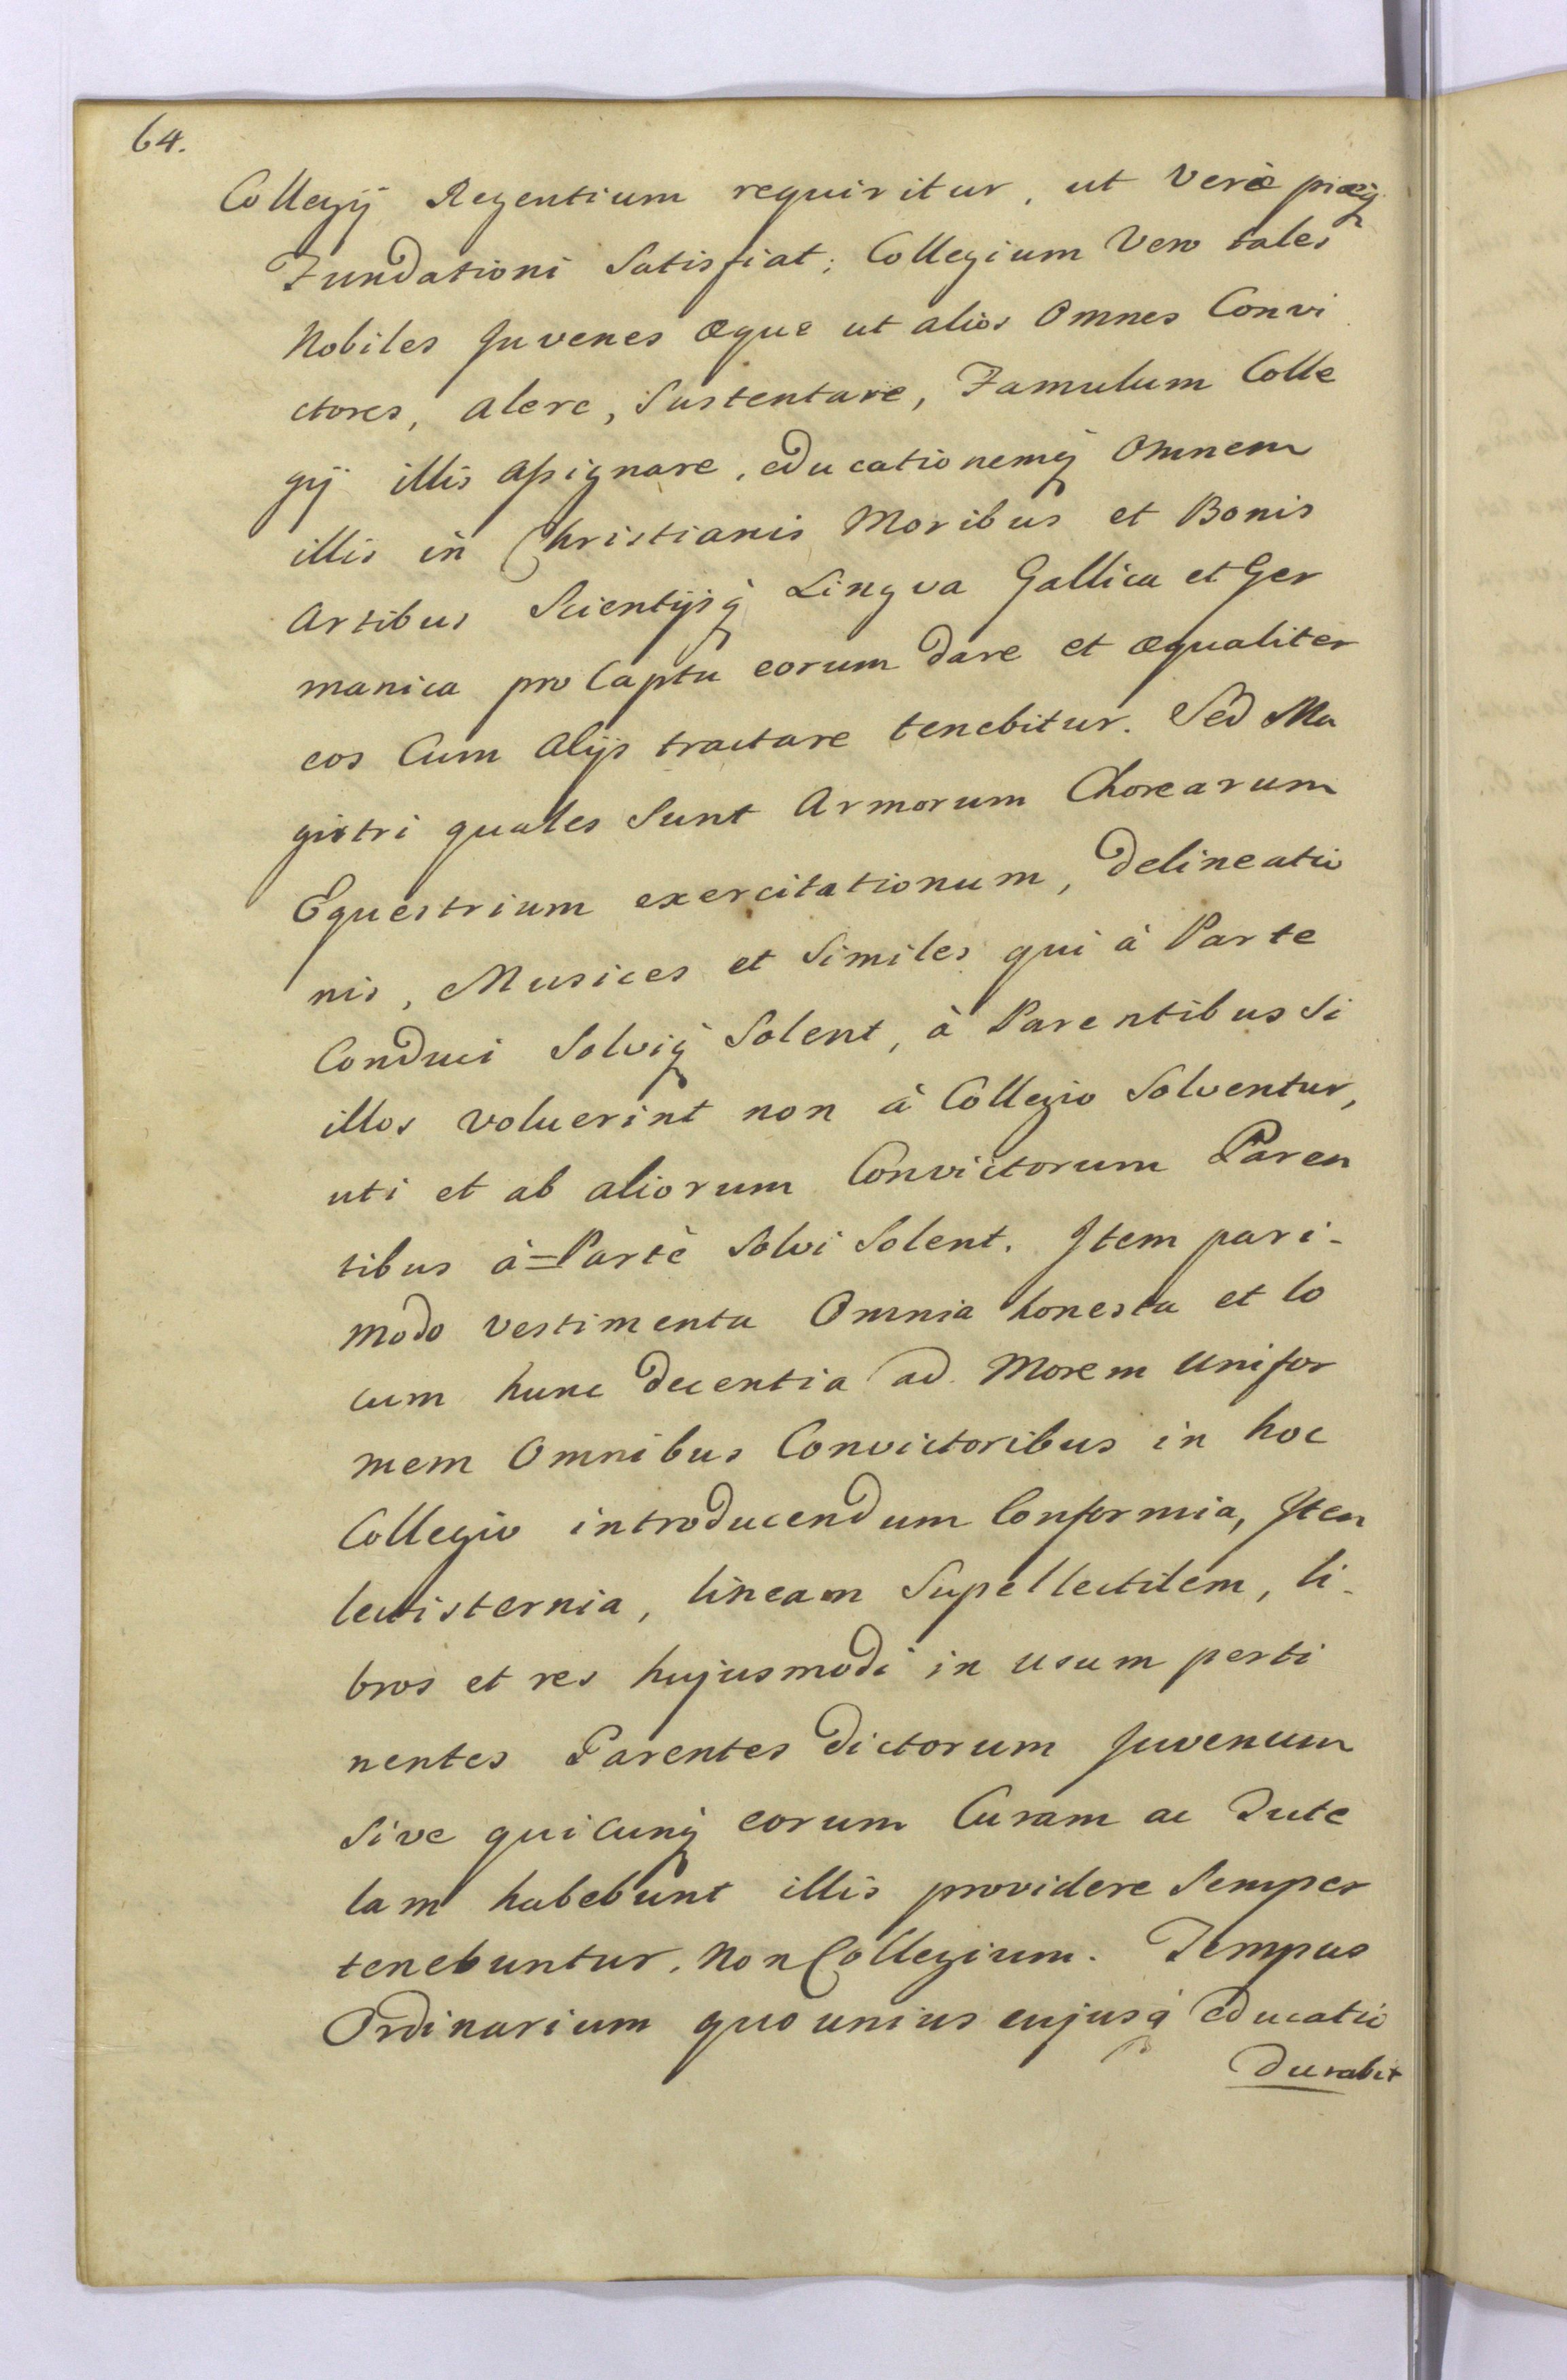 64.
Collegÿ Regentium requiritur, ut Veræ piæq
Fundationi Satisfiat; Collegium Vero tales
Nobiles Juvenes æque ut alios Omnes Convi
ctores, alere, Sustentare, Famulum Colle
gÿ illis assignare, educationemq Omnem
illis in Christianis Moribus et Bonis
Artibus Scientÿsq Lingva Gallica et Ger
manica pro Captu eorum dare et æqualiter
eos Cum Alÿs tractare tenebitur. Sed Ma
gistri quales Sunt Armorum Chorearum
Equestrium exercitationum, delineatio
nis, Musices et Similes qui à Parte
Conduci Solviq Solent, à Parentibus Si
illos voluerint non à Collegio Solventur,
uti et ab aliorum Convictorum Paren
tibus à=Parte Solvi Solent. Item pari-
modo vestimenta Omnia honesta et lo
cum hunc decentia ad Morem Unifor
mem Omnibus Convictoribus in hoc
Collegio introducendum Conformia, Item
lectisternia, lineam Supellectilem, li-
bros et res hujusmodi in usum perti
nentes Parentes dictorum Juvenum
Sive quicunq eorum Curam ac Tute
lam habebunt illis providere Semper
tenebuntur, Non Collegium. Tempus
Ordinarium quo unius cujusq educatio
durabit